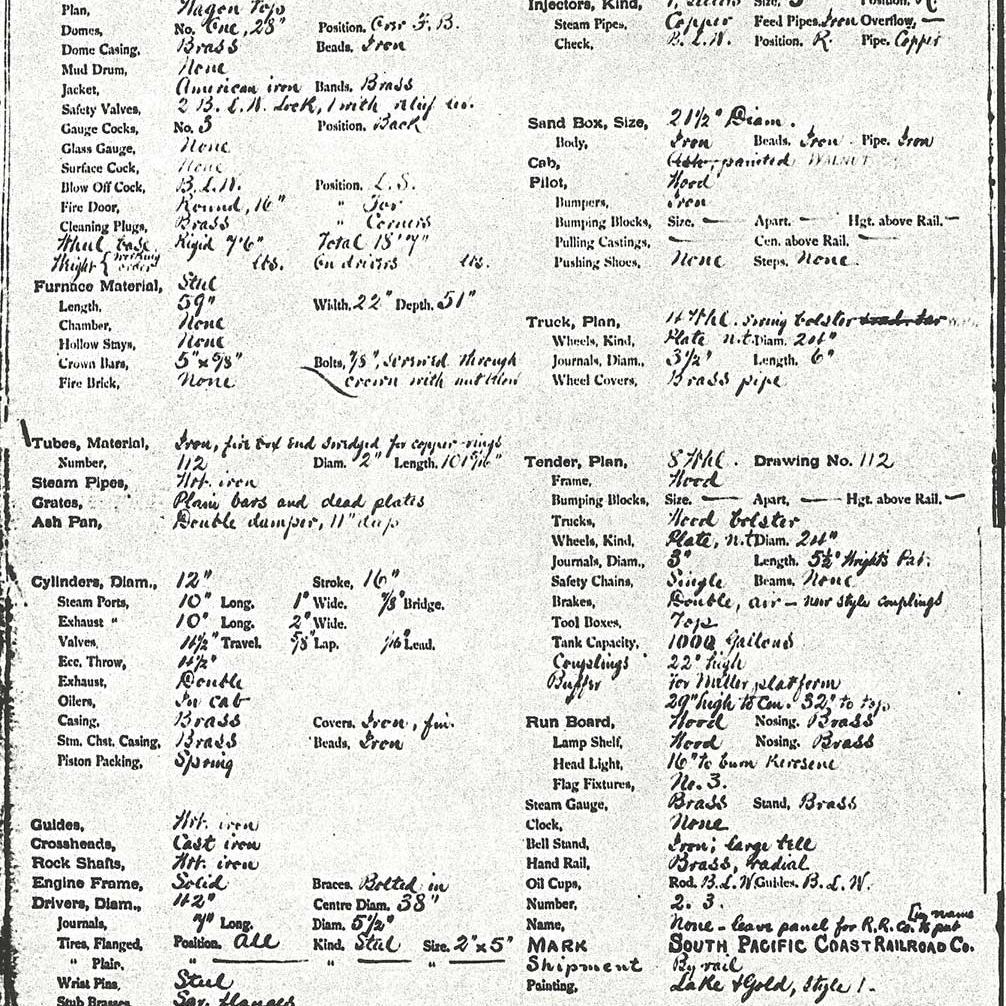 Plan, Wagon Top
Domes, No. One, 28" Position. Over F. B.
Dome Casing, Brass Beads. Iron
Mud Drum, None
Jacket, American iron Bands. Brass
Safety Valves, 2 B. L. W. Lock, 1 with relief
Gauge Cocks, No. 3 Position. Back
Glass Gauge, None
Surface Cock, None
Blow Off Cock, B. L. W. Position. L. S.
Fire Door, Round, 16" "
Cleaning Plugs, Brass " Corners
Wheel base Rigid 7'6" Total 18'7"
Weight { working order lbs. On drivers lbs.
Furnace Material, Steel
Length, 59" Width, 22" Depth. 51"
Chamber, None
Hollow Stays, None
Crown Bars, 5" x 5/8" Bolts, 7/8", screwed through
Fire Brick, None crown with nut below
Tubes, Material, Iron, fire box end swedged for copper rings
Number, 112 Diam. 2" Length. 101 5/16"
Steam Pipes, Wrt. iron
Grates, Plain bars and dead plates
Ash Pan, Double damper, 11" deep
Cylinders, Diam., 12" Stroke, 16"
Steam Ports, 10" Long. 1" Wide. 7/8" Bridge.
Exhaust " 10" Long. 2" Wide.
Valves, 4 1/2" Travel. 5/8" Lap. 1/16" Lead.
Ecc. Throw, 4 1/2"
Exhaust, Double
Oilers, In cab
Casing, Brass Covers. Iron, fin.
Stm. Chst. Casing, Brass Beads, Iron
Piston Packing, Spring
Guides, Wrt. iron
Crossheads, Cast iron
Rock Shafts, Wrt. iron
Engine Frame, Solid Braces. Bolted in
Drivers, Diam., 42" Centre Diam. 38"
Journals, 7" Long. Diam. 5 1/2"
Tires, Flanged, Position. All Kind. Steel Size. 2" x 5"
" Plain, " — " — " —
Wrist Pins, Steel
Stub Brasses, Sqr. flanges
Injectors, Kind, Size. Position. R.
Steam Pipes, Copper Feed Pipes. Iron Overflow, —
Check, B. L. W. Position. R. Pipe. Copper
Sand Box, Size, 21 1/2" Diam.
Body, Iron Beads. Iron Pipe. Iron
Cab, Ash, painted WALNUT
Pilot, Wood
Bumpers, Iron
Bumping Blocks, Size. — Apart. — Hgt. above Rail. —
Pulling Castings, — Cen. above Rail. —
Pushing Shoes, None Steps. None.
Truck, Plan, 4 Whl. swing bolster
Wheels, Kind, Plate n.t. Diam. 24"
Journals, Diam., 3 1/2" Length. 6"
Wheel Covers, Brass pipe
Tender, Plan, 8 Whl. Drawing No. 112
Frame, Wood
Bumping Blocks, Size. — Apart, — Hgt. above Rail. —
Trucks, Wood bolster
Wheels, Kind, Plate, n.t. Diam. 24"
Journals, Diam., 3" Length. 5 1/2" Wright's Pat.
Safety Chains, Single Beams. None
Brakes, Double, air — new style couplings
Tool Boxes, Top
Tank Capacity, 1000 Gallons
Couplings 22" high
Buffer for Miller platform
29" high to Cen. 32" to top
Run Board, Wood Nosing. Brass
Lamp Shelf, Wood Nosing. Brass
Head Light, 16" to burn Kerosene
Flag Fixtures, No. 3.
Steam Gauge, Brass Stand, Brass
Clock, None
Bell Stand, Iron; large bell
Hand Rail, Brass, radial
Oil Cups, Rod. B. L. W. Guides. B. L. W.
Number, 2. 3.
Name, None - leave panel for R.R. Co. to put name
MARK SOUTH PACIFIC COAST RAILROAD CO.
Shipment By rail
Painting, Lake & Gold, Style 1.